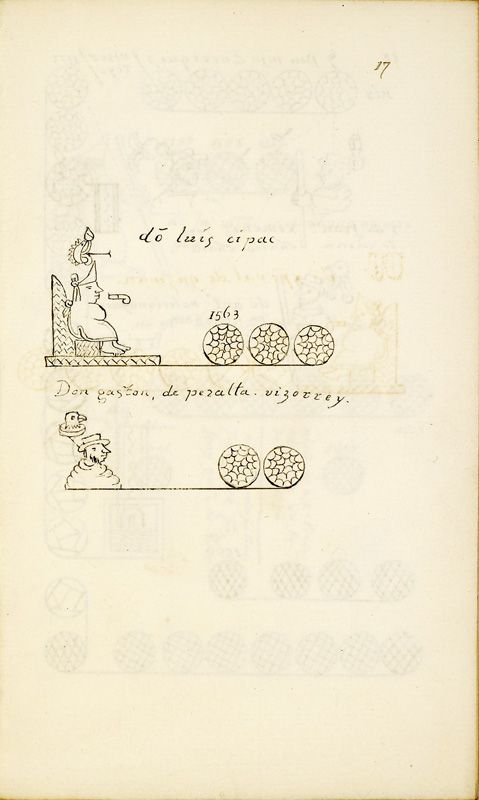 17
dõ luis cipac
1563
Don gaston, de peralta. vizorrey.